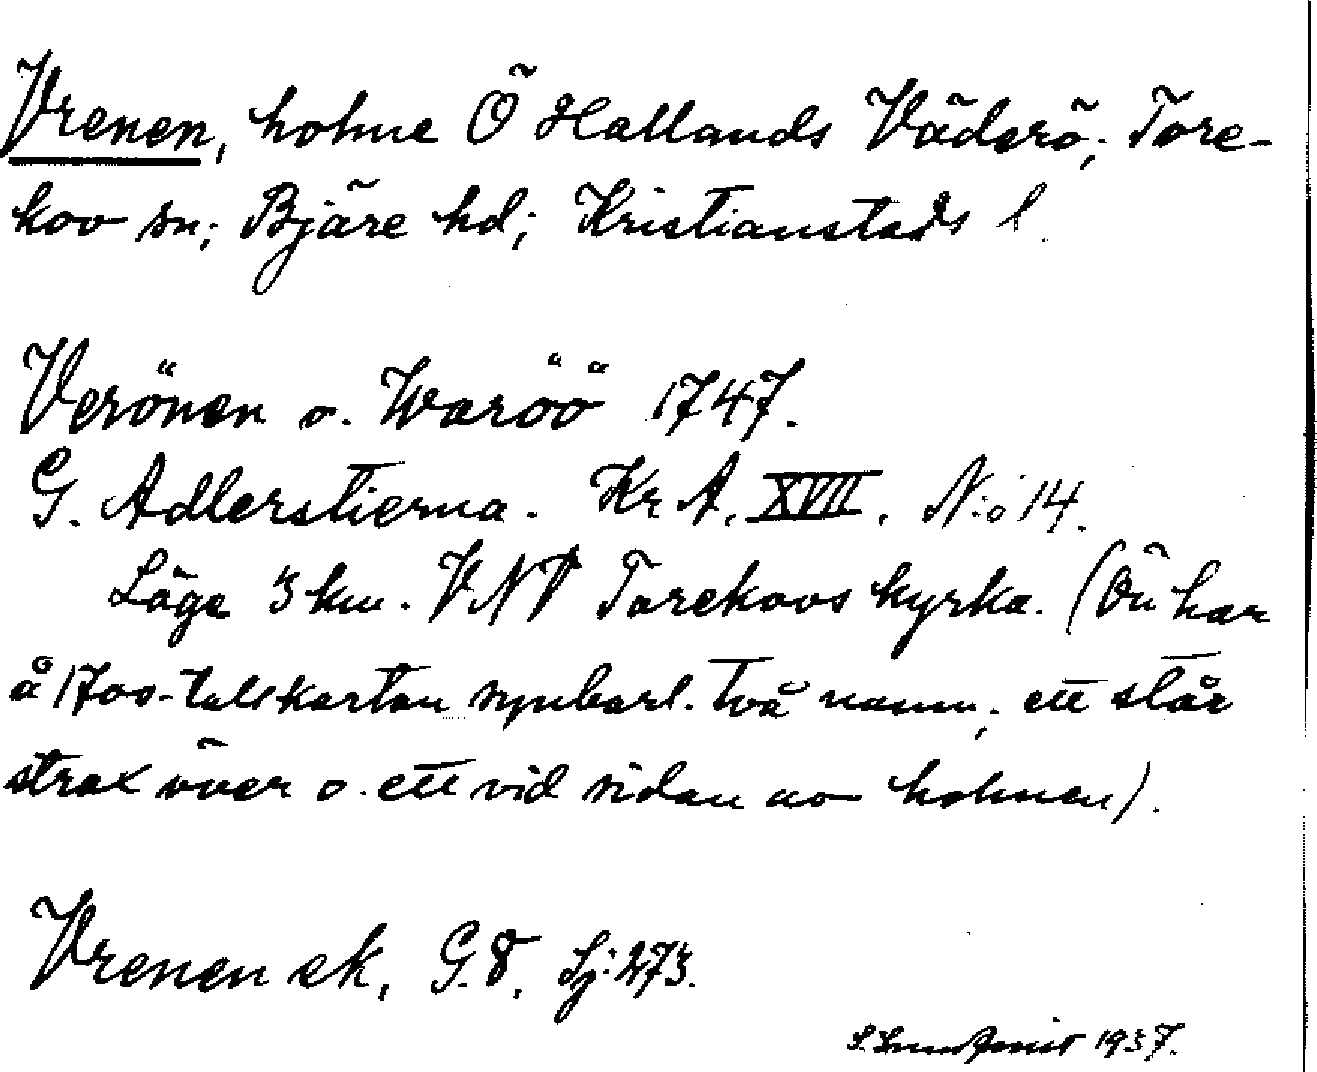 Vrenen, holme Ö Hallands Väderö; Tore-
kov sn; Bjäre hd; Kristianstads l.
Verönen o. Waröö 1747.
G. Adlerstierna. Kr A. XVII. N:o 14.
Läge 3 km. VNV Torekovs kyrka. (Ön har
å 1700-talskartan synbarl. två namn; ett står
strax över o. ett vid sidan av holmen).
Vrenen ek, G.8. Sj: 273.
1937.